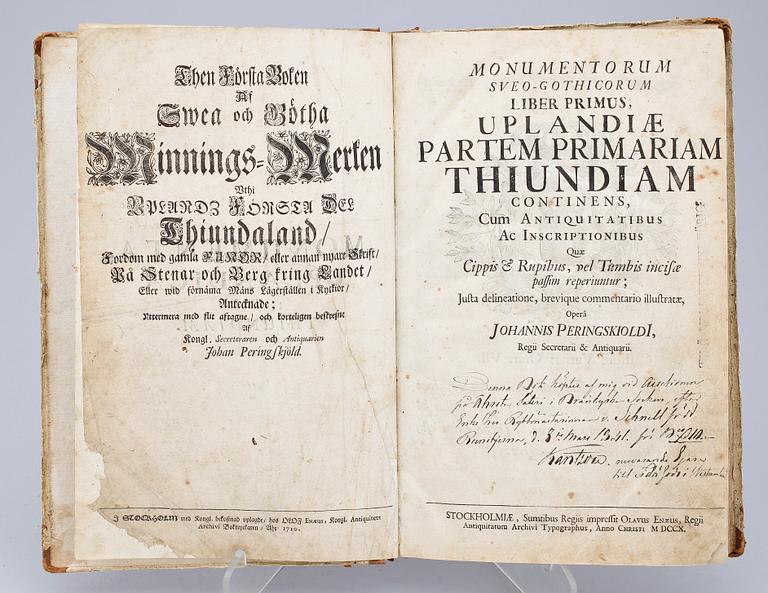 Then Första Boken
Af
Swea och Götha
Minnings-Merken
Uthi
UPLANDZ FÖRSTA DEL
Thiundaland/
Fordom med gamla RUNOR/ eller annan nyare Skrift/
På Stenar och Berg kring Landet/
Eller wid förnäma Mäns Lägerställen i Kyrkior/
Antecknade;
Yttermera med flit aftagne/ och korteligen beskrefne
Af
Kongl. Secreteraren och Antiquarien
Johan Peringskjöld.
I STOCKHOLM med Kongl. bekostnad uplagde/ hos OLOF ENÆUS, Kongl. Antiquitets
Archivi Boktryckare/ Åhr 1710.
MONUMENTORUM
SVEO-GOTHICORUM
LIBER PRIMUS,
UPLANDIÆ
PARTEM PRIMARIAM
THIUNDIAM
CONTINENS,
Cum ANTIQUITATIBUS
Ac INSCRIPTIONIBUS
Quæ
Cippis & Rupibus, vel Tumbis incisæ
passim reperiuntur;
Justa delineatione, brevique commentario illustratæ,
Operâ
JOHANNIS PERINGSKIOLDI,
Regii Secretarii & Antiquarii.
Denna Bok köptes af mig vid Auctionen
på Socken, efter
Enke Fru Ryttmästarinnan v. Schnell född
d. 8de Mars 1841. för
nuvarande Egare
till
STOCKHOLMIÆ, Sumtibus Regiis impressit OLAVUS ENÆUS, Regii
Antiquitatum Archivi Typographus, Anno CHRISTI M DCCX.